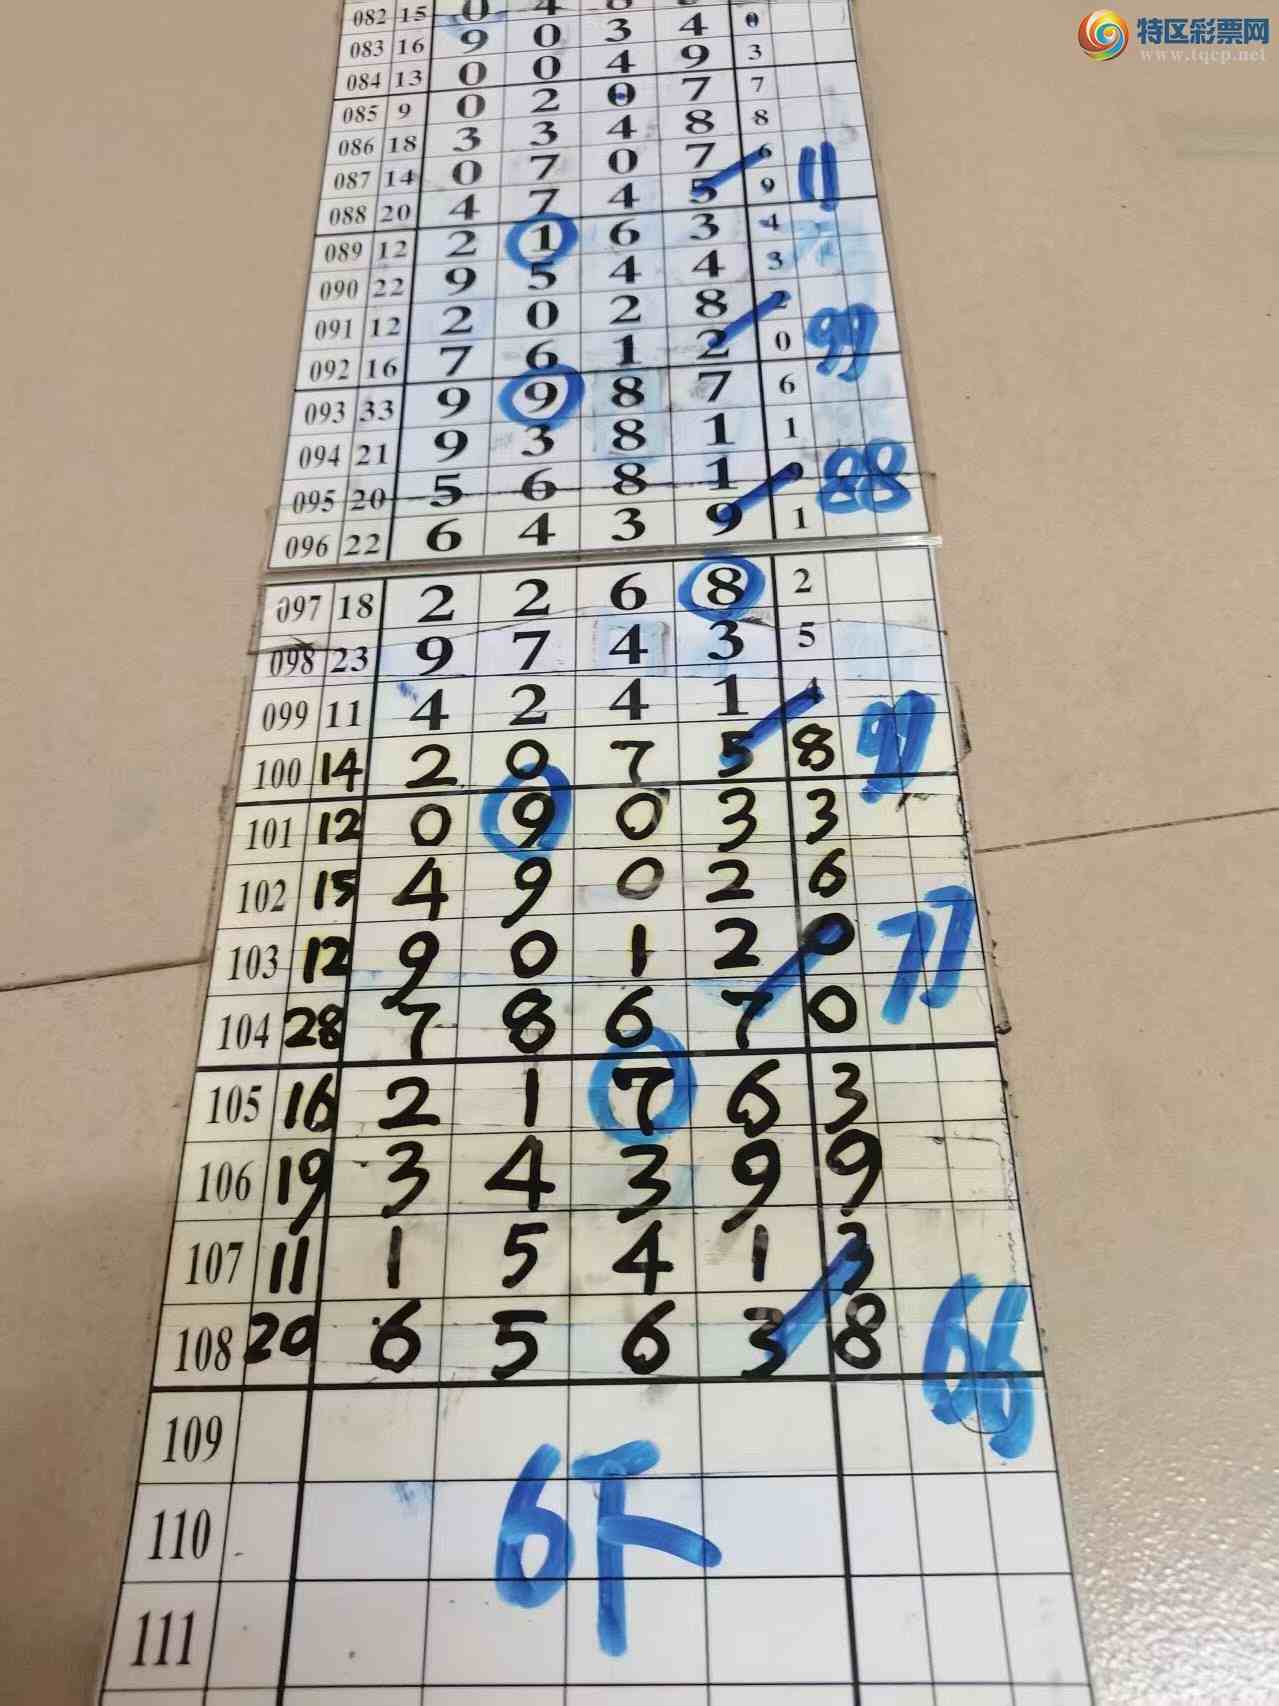 特区彩票网
www.tqcp.net
082 15 0 4 0
083 16 9 0 3 4 3
084 13 0 0 4 9 7
085 9 0 2 0 7 8
086 18 3 3 4 8 6
087 14 0 7 0 7 9 11
088 20 4 7 4 5 4
089 12 2 1 6 3 3
090 22 9 5 4 4 2
091 12 2 0 2 8 0 99
092 16 7 6 1 2 6
093 33 9 9 8 7 1
094 21 9 3 8 1 9 88
095 20 5 6 8 1 1
096 22 6 4 3 9
097 18 2 2 6 8 2
098 23 9 7 4 3 5
099 11 4 2 4 1 4
100 14 2 0 7 5 8 99
101 12 0 9 0 3 3
102 15 4 9 0 2 6
103 12 9 0 1 2 0 77
104 28 7 8 6 7 0
105 16 2 1 7 6 3
106 19 3 4 3 9 9
107 11 1 5 4 1 3
108 20 6 5 6 3 8 66
109
110 6下
111